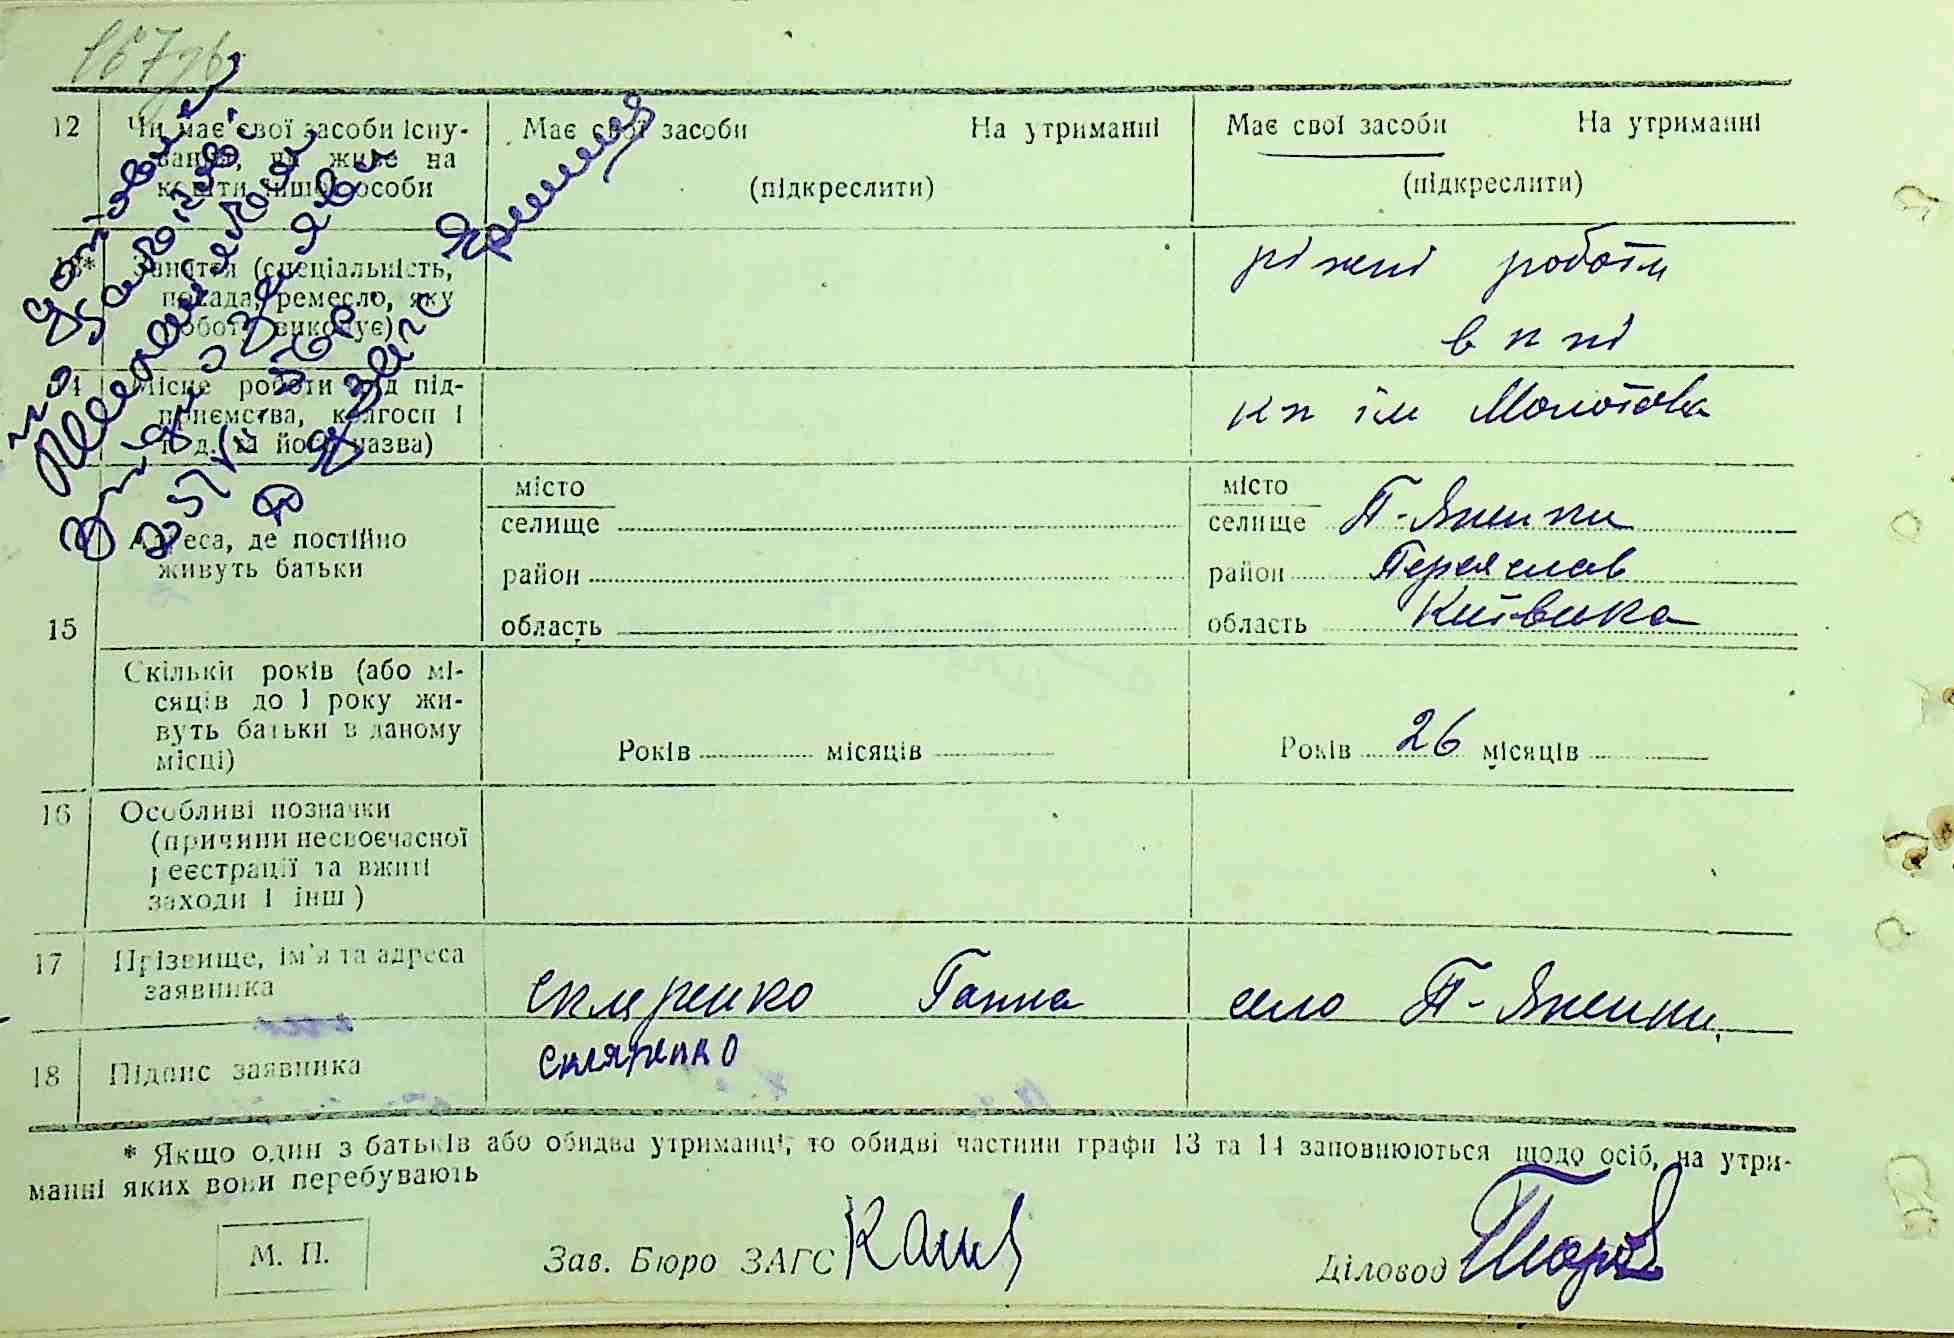 12
Чи має свої засоби існу-
вання, чи живе на
кошти іншої особи
Має свої засоби На утриманні
(підкреслити)
Має свої засоби На утриманні
(підкреслити)
13*
Заняття (спеціальність,
посада, ремесло, яку
роботу виконує)
ріжні роботи
в кп
14
Місце роботи (від під-
приємства, колгосп і
т. д. та його назва)
кп ім Молотова
15
Адреса, де постійно
живуть батьки
місто
селище
район
область
місто
селище П-Яненки
район Переяслав
область Київська
Скільки років (або мі-
сяців до 1 року жи-
вуть батьки в даному
місці)
Років місяців
Років 26 місяців
16
Особливі позначки
(причини несвоєчасної
реєстрації та вжиті
заходи і інш)
17
Прізвище, ім'я та адреса
заявника
Скляренко Ганна
село П-Яненки
18
Підпис заявника
Скляренко
* Якщо один з батьків або обидва утриманці, то обидві частини графи 13 та 14 заповнюються щодо осіб, на утри-
манні яких вони перебувають
М. П.
Зав. Бюро ЗАГС
Діловод